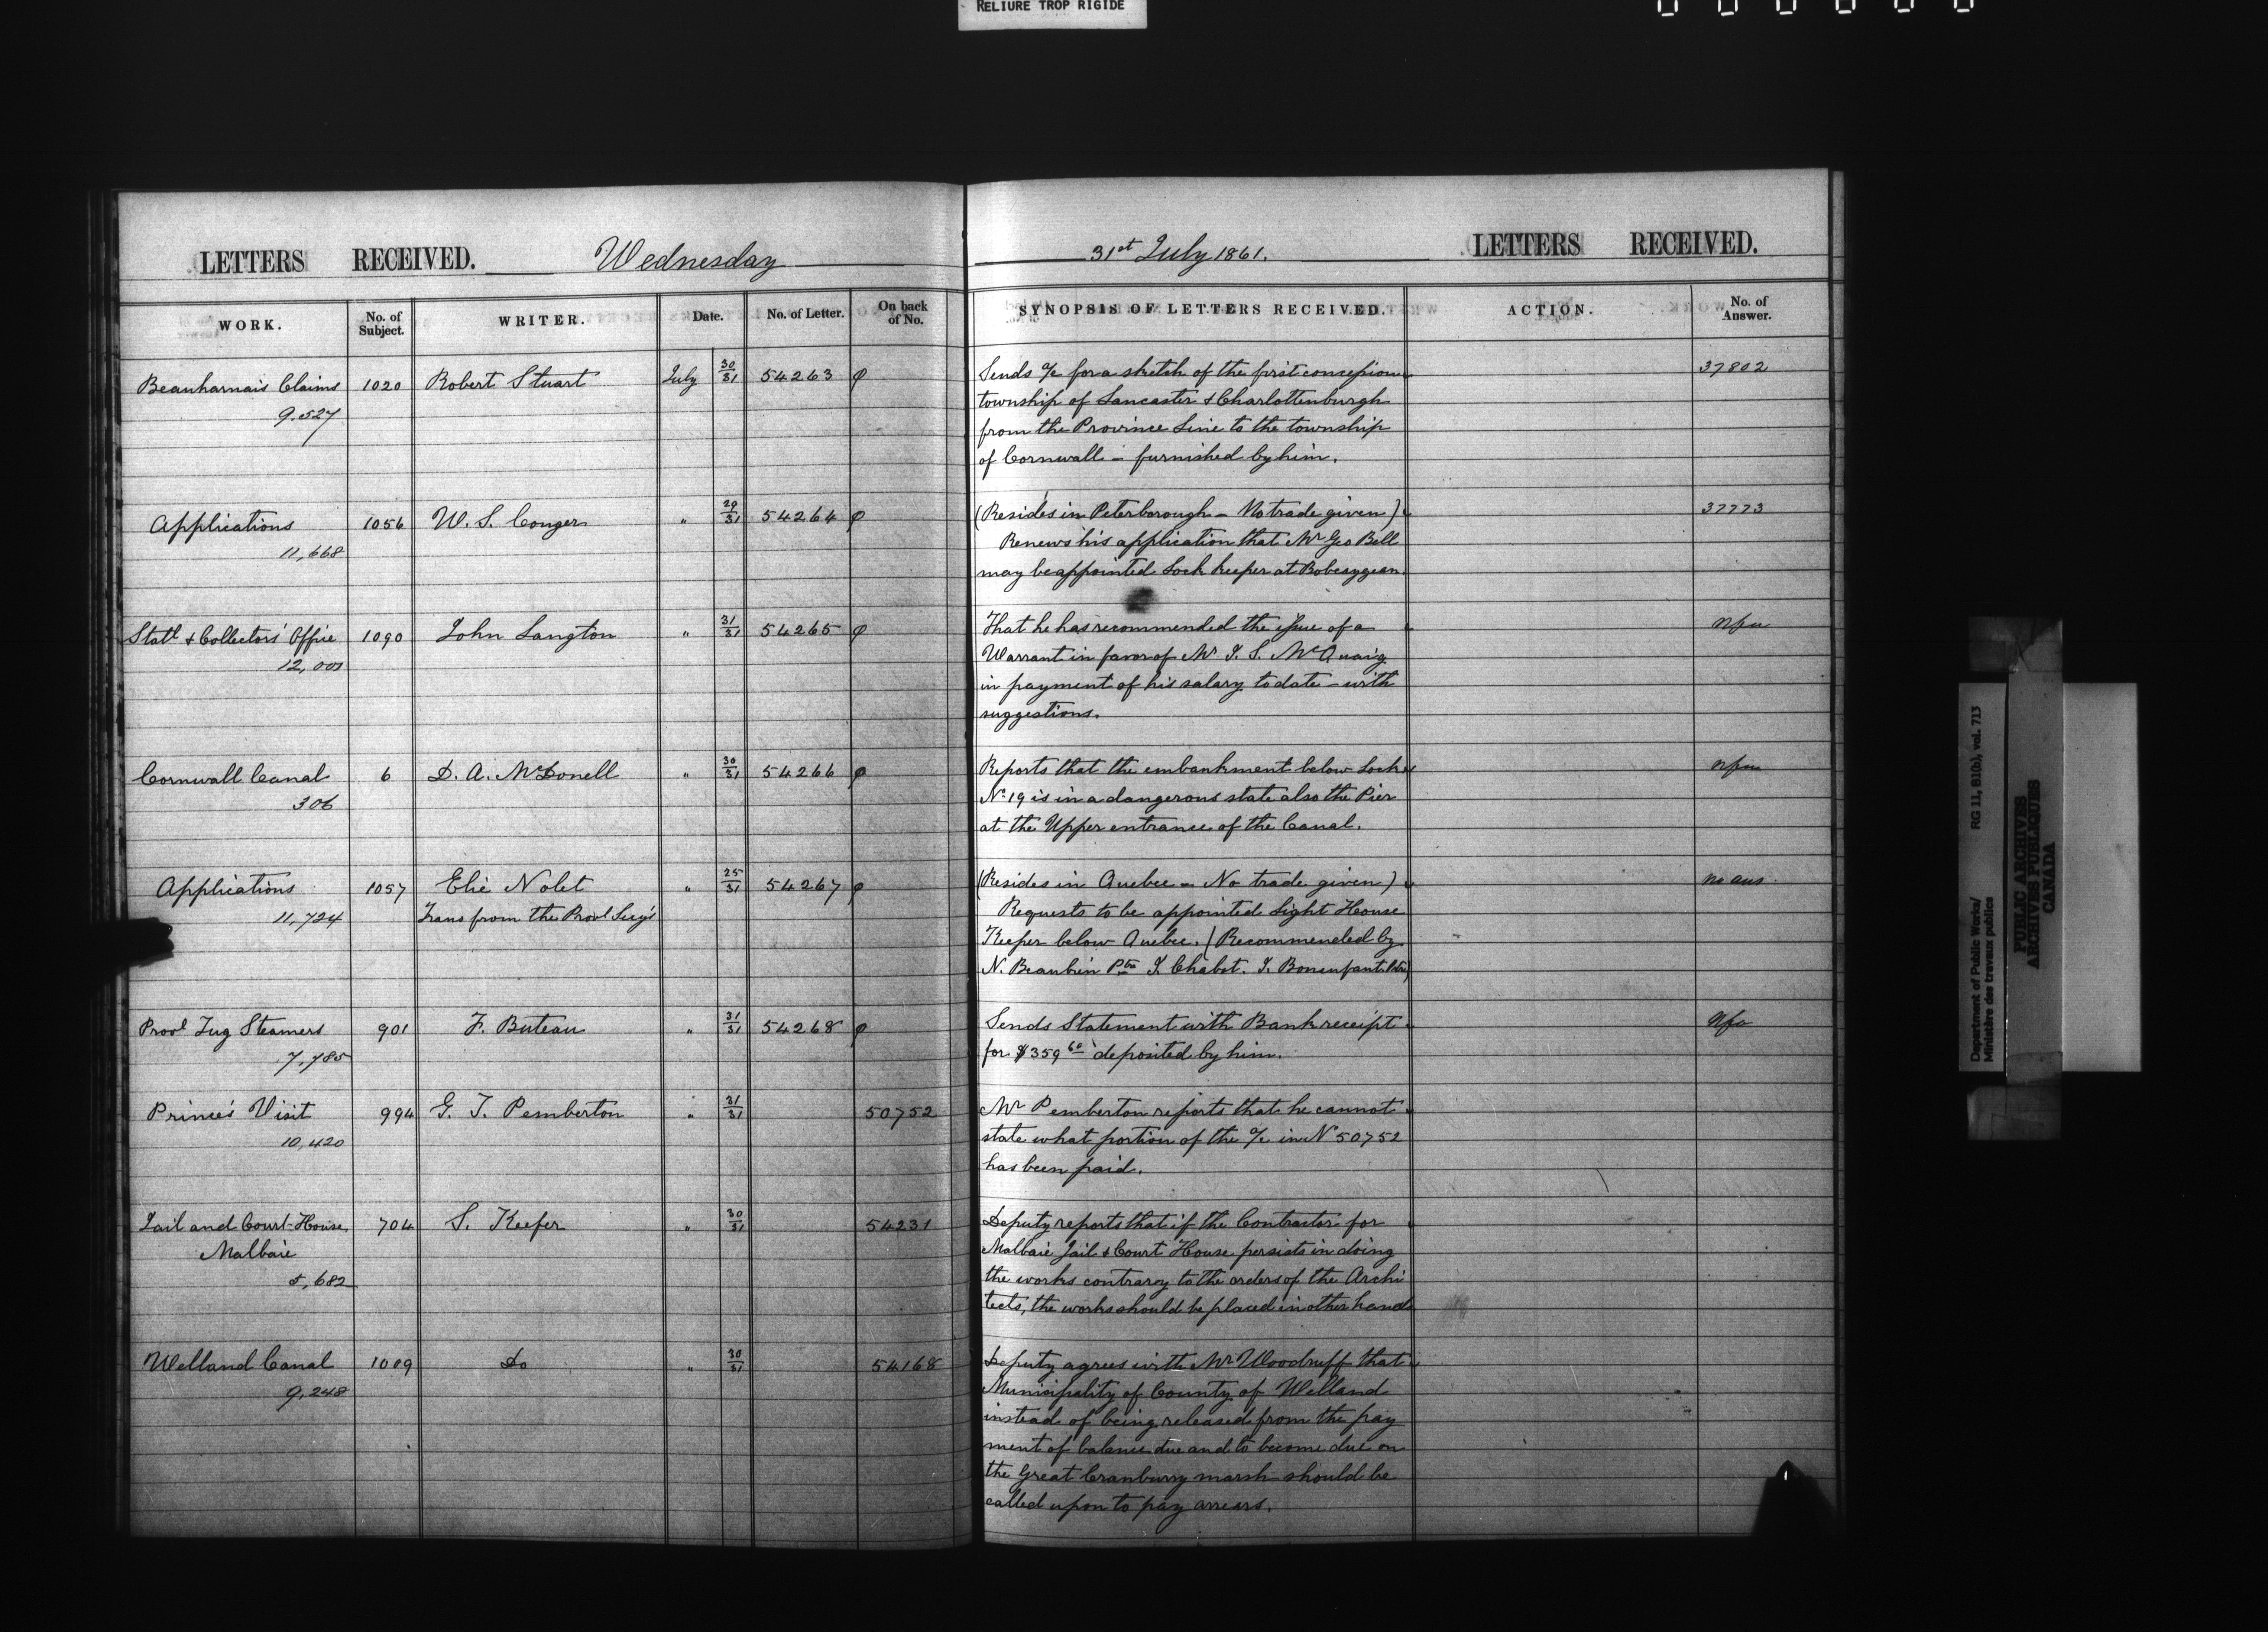 RELIURE TROP RIGIDE
LETTERS RECEIVED. Wednesday
WORK. No. of Subject. WRITER. Date. No. of Letter. On back of No.
Beauharnais Claims 1020 Robert Stuart July 30/31 54263 φ
9.527
Applications 1056 W. S. Conger " 29/31 54264 φ
11,668
Statl & Collectors' Office 1090 John Langton " 31/31 54265 φ
12,001
Cornwall Canal 6 D. A. McDonell " 30/31 54266 φ
306
Applications 1057 Elie Nolet " 25/31 54267 φ
11,724 Trans from the Provl Secy's
Provl Tug Steamers 901 F. Buteau " 31/31 54268 φ
7,785
Prince's Visit 994 G. T. Pemberton " 31/31 50752
10,420
Jail and Court-House 704 S. Keefer " 30/31 54231
Malbaie
5,682
Welland Canal 1009 Do " 30/31 54168
9,248
31st July 1861. LETTERS RECEIVED.
SYNOPSIS OF LETTERS RECEIVED. ACTION. No. of Answer.
Sends a/c for a sketch of the first concession 37802
township of Lancaster & Charlottenburgh
from the Province Line to the township
of Cornwall - furnished by him.
(Resides in Peterborough - No trade given) 37773
Renews his application that Mr Geo Bell
may be appointed Lock keeper at Bobcaygean.
That he has recommended the issue of a nfa
Warrant in favor of Mr J. S. McQuaig
in payment of his salary to date - with
suggestions.
Reports that the embankment below Lock nfa
No 19 is in a dangerous state also the Pier
at the Upper entrance of the Canal.
(Resides in Quebec - No trade given) no ans
Requests to be appointed Light House
Keeper below Quebec. (Recommended by
N. Beaubien Ptre J. Chabot. J. Bonenfant Ptre)
Sends Statement with Bank receipt nfa
for $359 60 deposited by him.
Mr Pemberton reports that he cannot
state what portion of the a/c in No 50752
has been paid.
Deputy reports that if the Contractor for
Malbaie Jail & Court House persists in doing
the works contrary to the orders of the Archi
tects, the works should be placed in other hands
Deputy agrees with Mr Woodruff that
Municipality of County of Welland
instead of being released from the pay
ment of balance due and to become due on
the Great Cranburry marsh should be
called upon to pay arrears.
Department of Public Works/ RG 11, B1(b), vol. 713
Ministère des travaux publics
PUBLIC ARCHIVES
ARCHIVES PUBLIQUES
CANADA